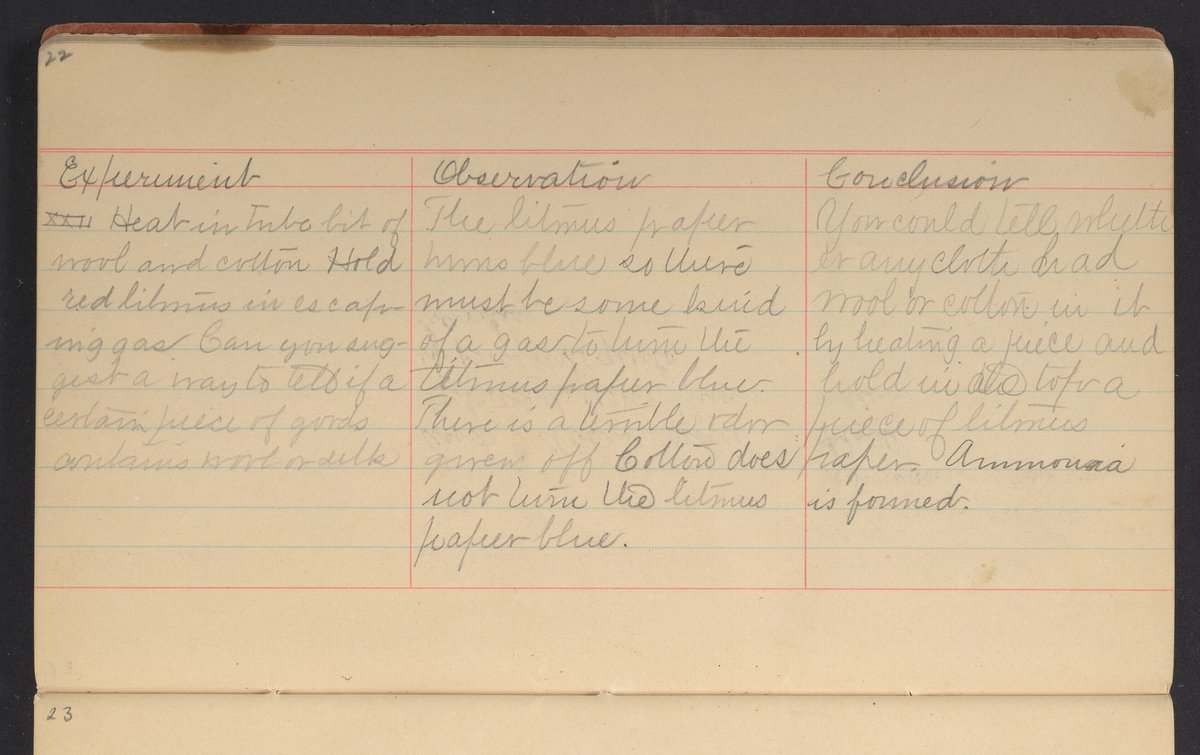 22
Experiment
XXII Heat in tube bit of
wool and cotton Hold
red litmus in escap-
ing gas Can you sug-
gest a way to tell if a
certain piece of goods
contains wool or silk
Observation
The litmus paper
turns blue so there
must be some kind
of a gas to turn the
litmus paper blue.
There is a terrible odor
given off Cotton does
not turn the litmus
paper blue.
Conclusion
You could tell wheth
er any cloth had
wool or cotton in it
by heating a piece and
hold in top a
piece of litmus
paper. Ammonia
is formed.
23